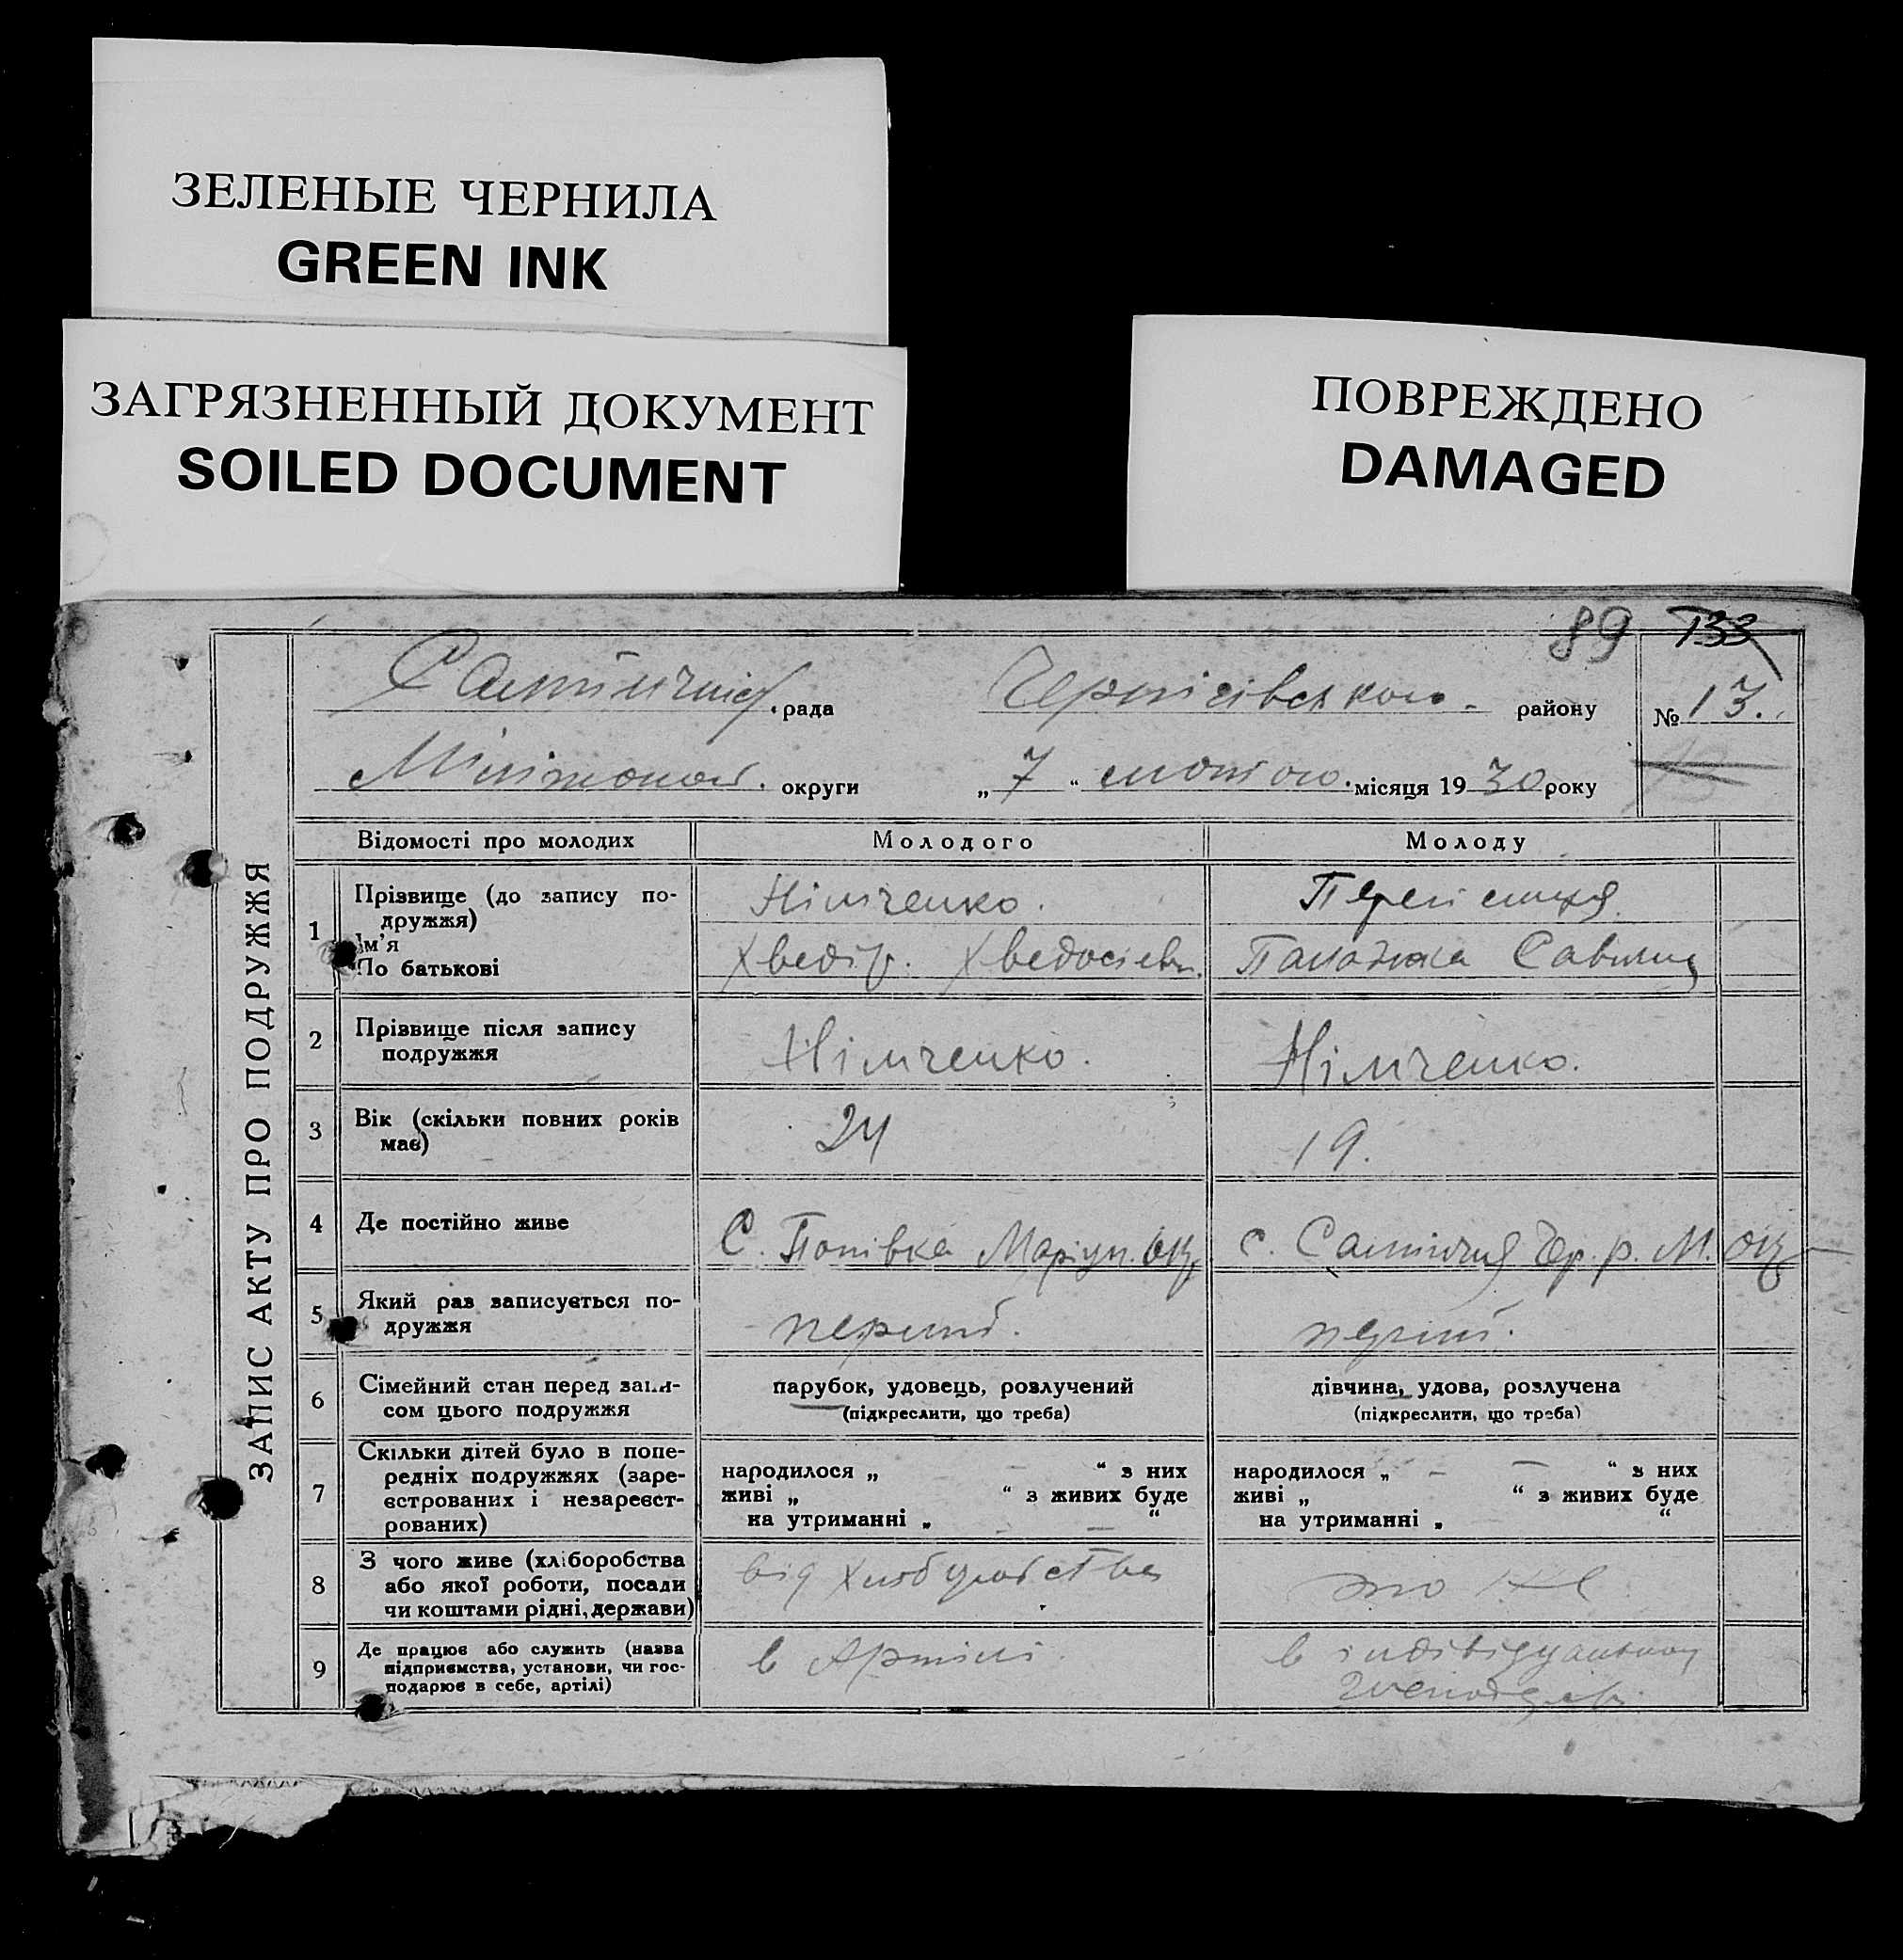 ЗЕЛЕНЫЕ ЧЕРНИЛА
GREEN INK
ЗАГРЯЗНЕННЫЙ ДОКУМЕНТ
SOILED DOCUMENT
ПОВРЕЖДЕНО
DAMAGED
89 133
рада Чернігівського району № 13.
округи „ 7 “ лютого. місяця 19 30 року
ЗАПИС АКТУ ПРО ПОДРУЖЖЯ
Відомості про молодих Молодого Молоду
1 Прізвище (до запису по-
дружжя)
Німченко.
Ім'я
По батькові
Хведір. Савишна
2 Прізвище після запису
подружжя
Німченко. Німченко.
3 Вік (скільки повних років
має)
24 19.
4 Де постійно живе
С. Попівка Маріуп. окр. с. Салтичия Чер. р. М. окр
5 Який раз записується по-
дружжя
перший. перший.
6 Сімейний стан перед запи-
сом цього подружжя
парубок, удовець, розлучений
(підкреслити, що треба)
дівчина, удова, розлучена
(підкреслити, що треба)
7 Скільки дітей було в попе-
редніх подружжях (заре-
єстрованих і незареєст-
рованих)
народилося „ — — “ з них
живі „ “ з живих буде
на утриманні „ — “
народилося „ — — “ з них
живі „ “ з живих буде
на утриманні „ “
8 З чого живе (хліборобства
або якої роботи, посади
чи коштами рідні, держави)
від хліборобства
то же
9 Де працює або служить (назва
підприємства, установи, чи гос-
подарює в себе, артілі)
в Артілі.
в